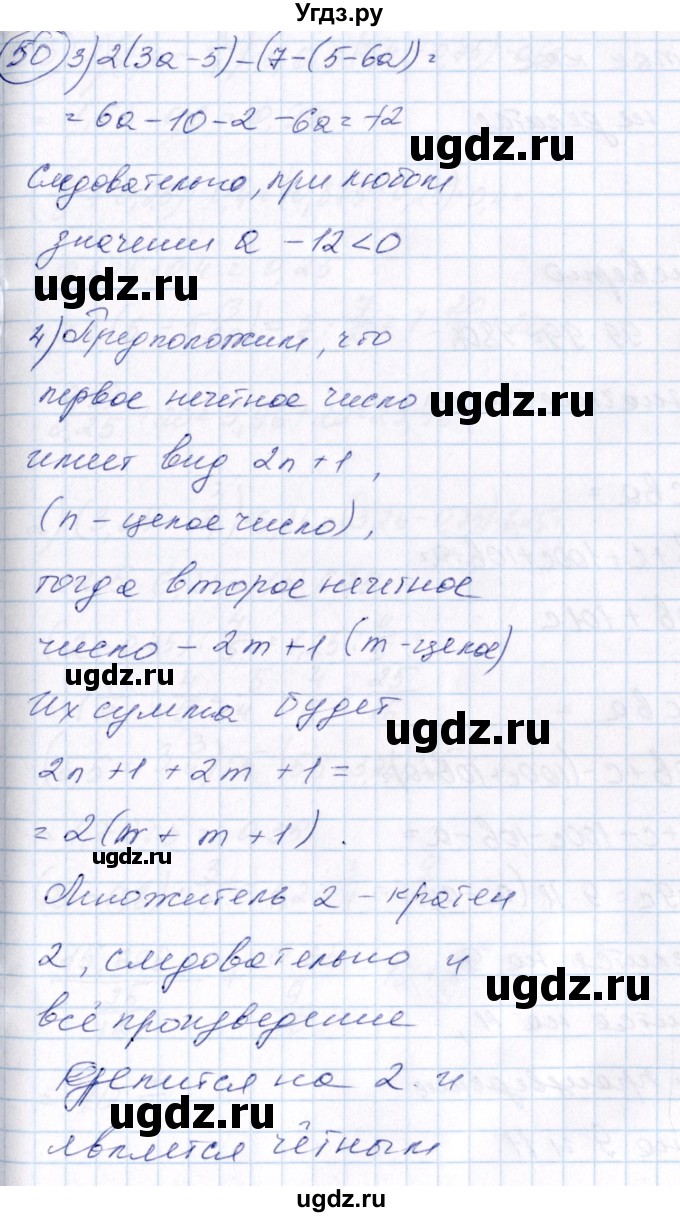 Угдз.ру
50 3) 2(3a-5)-(7-(5-6a))=
= 6a-10-2-6a=-12
ugdz.ru
Следовательно, при любом
значении a -12<0
ugdz.ru
4) Предположим, что
первое нечётное число
ugdz.ru
имеет вид 2n+1,
(n - целое число),
тогда второе нечётное
число - 2m+1 (m - целое)
ugdz.ru
Их сумма будет
ugdz.ru
2n+1+2m+1=
=2(n+m+1).
ugdz.ru
Множитель 2 - кратен
2, следовательно и
ugdz.ru
всё произведение
делится на 2 и
ugdz.ru
является чётным
ugdz.ru